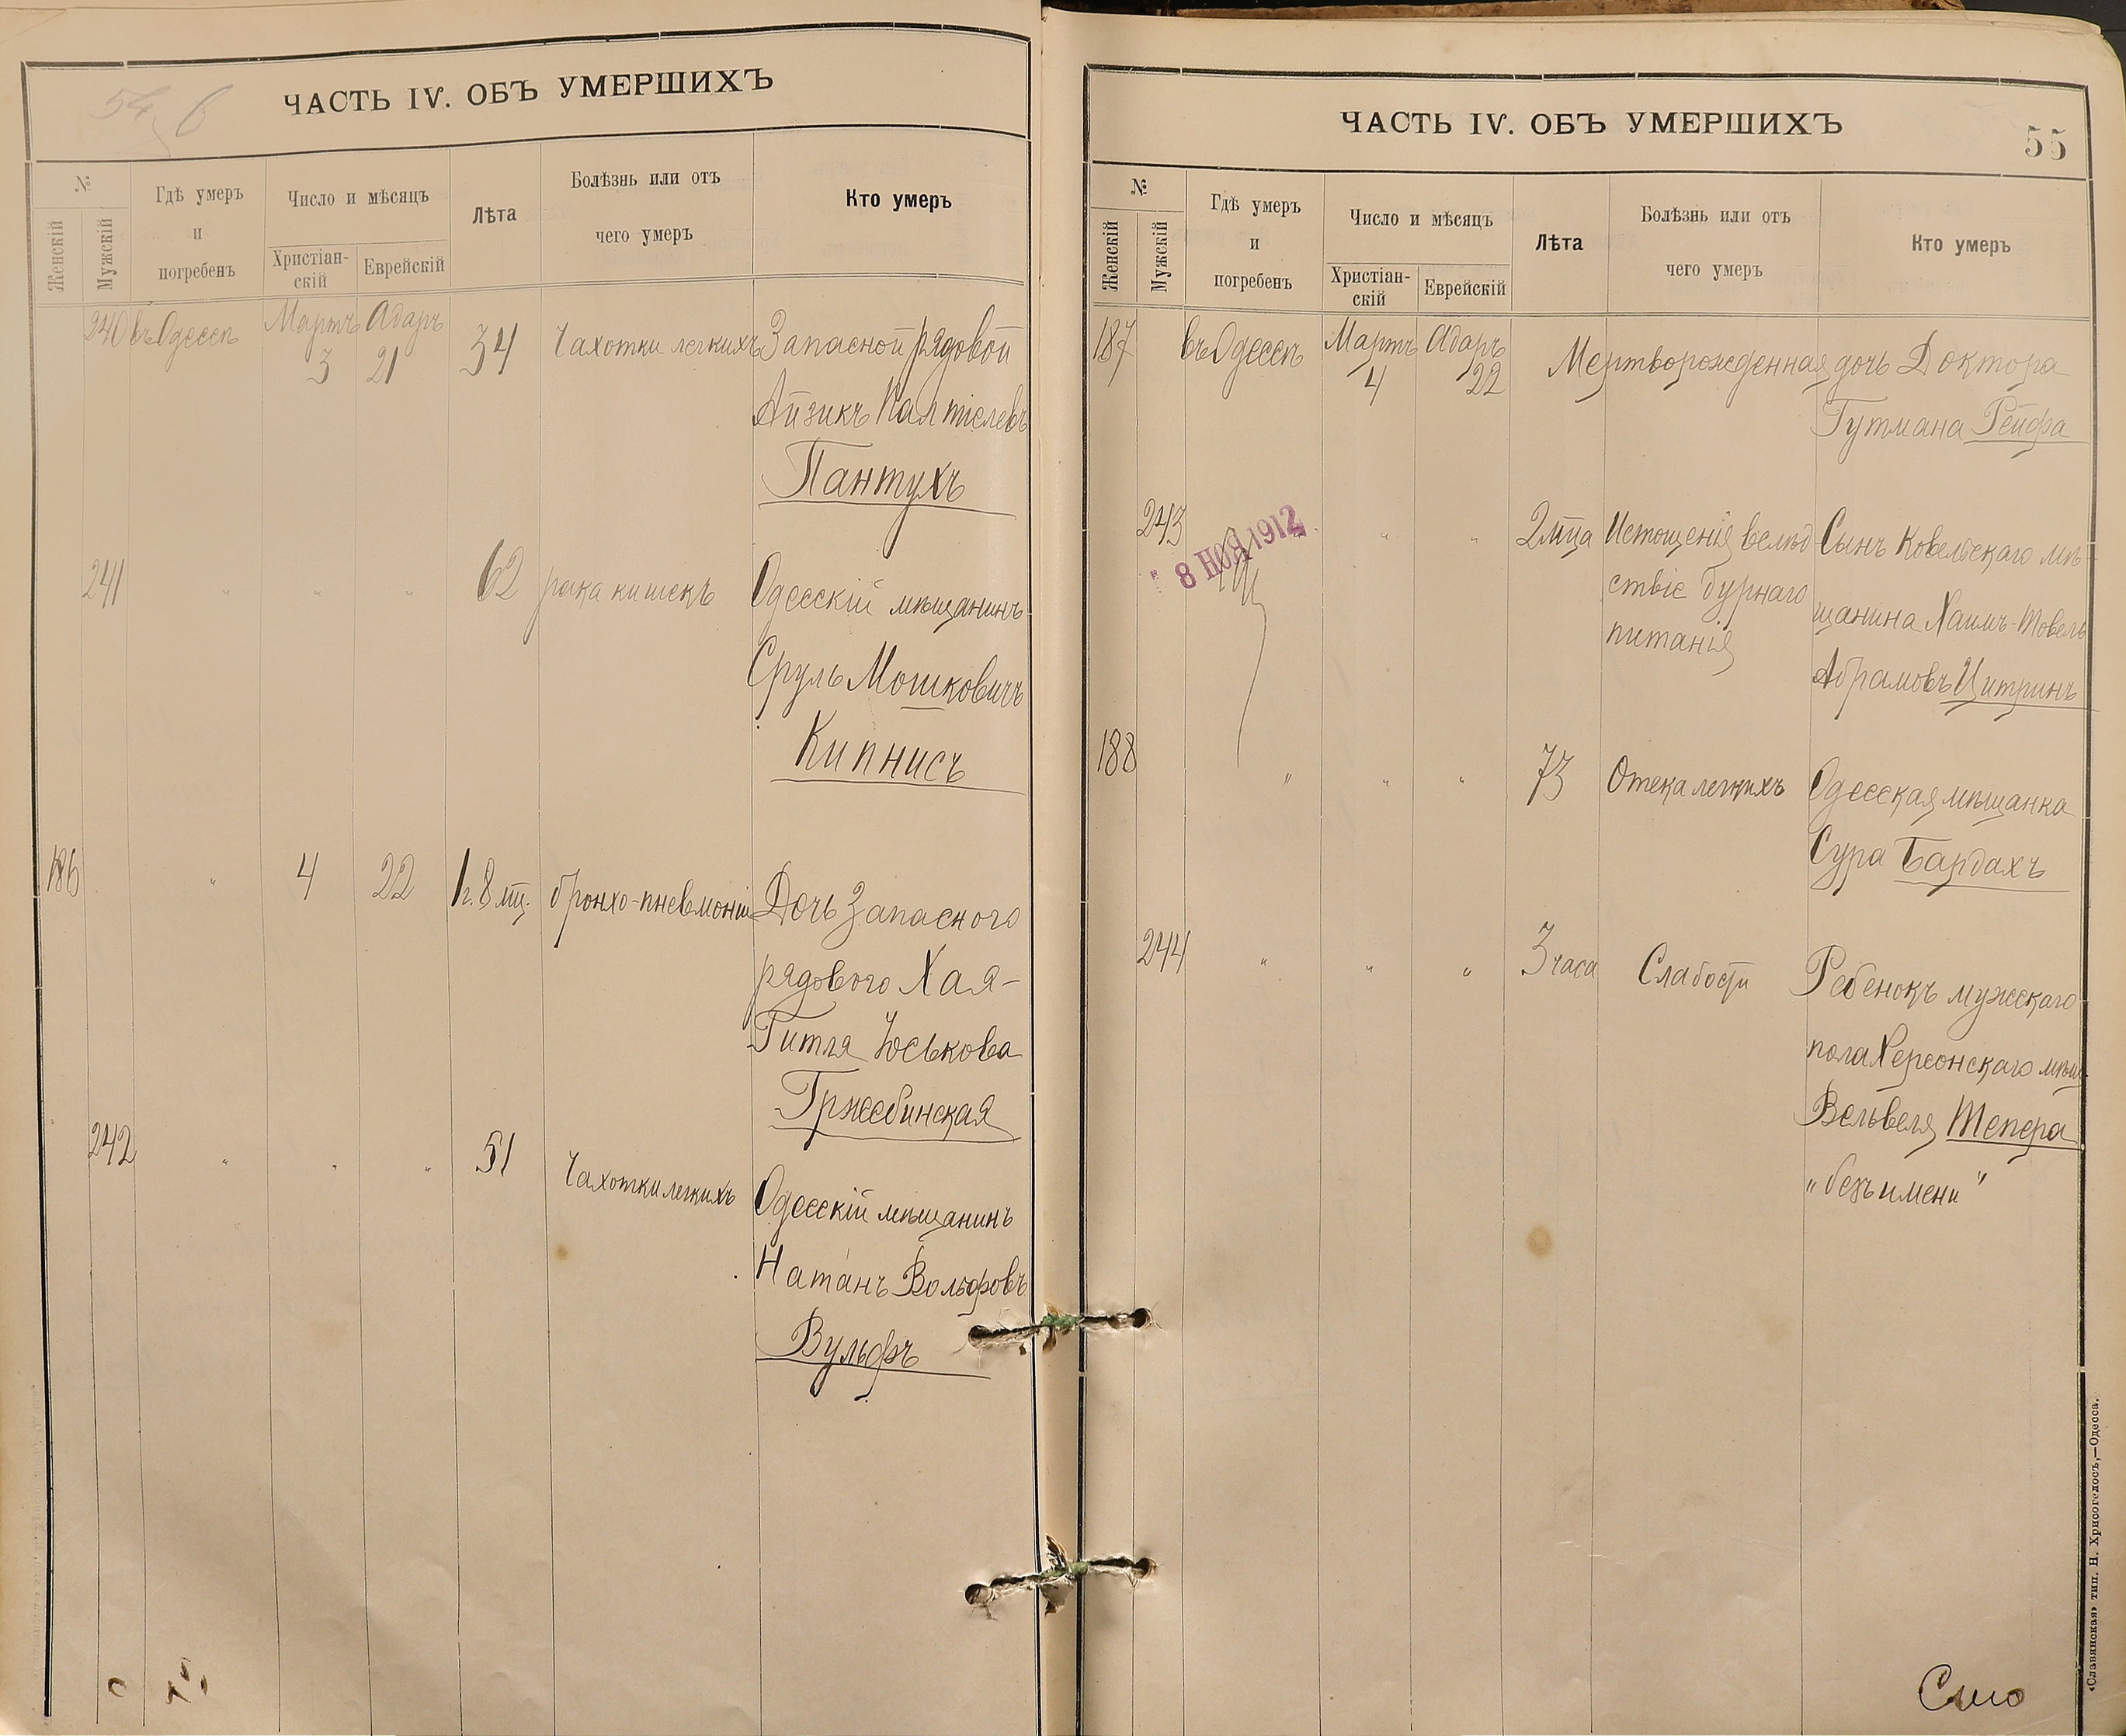 54
ЧАСТЬ IV. ОБЪ УМЕРШИХЪ
№
Женскій
Мужскій
Гдѣ умеръ
и
погребенъ
Число и мѣсяцъ
Христіан-
скій
Еврейскій
Лѣта
Болѣзнь или отъ
чего умеръ
Кто умеръ
240 въ Одессѣ Мартъ 3 Адаръ 21 34 Чахотки легкихъ Запасной рядовой
Айзикъ
Пантухъ
241 " " " 62 рака кишекъ Одесскій мѣщанинъ
Сруль Мошковичъ
Кипнисъ
186 " 4 22 1 г. 8 мц. бронхо-пневмоніи Дочь Запасного
рядового Хая-
Гитля Юськова
Гржебинская
242 " " " 51 Чахотки легкихъ Одесскій мѣщанинъ
Натанъ Вольфовъ
Вульфъ
ЧАСТЬ IV. ОБЪ УМЕРШИХЪ
55
№
Женскій
Мужскій
Гдѣ умеръ
и
погребенъ
Число и мѣсяцъ
Христіан-
скій
Еврейскій
Лѣта
Болѣзнь или отъ
чего умеръ
Кто умеръ
187 въ Одессѣ Мартъ 4 Адаръ 22 Мертворожденная дочь Доктора
Гутмана Рейфа
243 " " " 2 мца Истощенія вслѣд Сынъ Ковельскаго мѣ-
8 НОЯ 1912
ствіе дурнаго щанина Хаимъ-Товель
питанія Абрамовъ Цитринъ
188 " " " 73 Отека легкихъ Одесская мѣщанка
Сура Бардахъ
244 " " " 3 часа Слабости Ребенокъ мужскаго
пола Херсонскаго мѣщ.
Вельвеля Тепера
"безъ имени"
«Славянская» тип. Н. Хрисогелосъ,—Одесса.